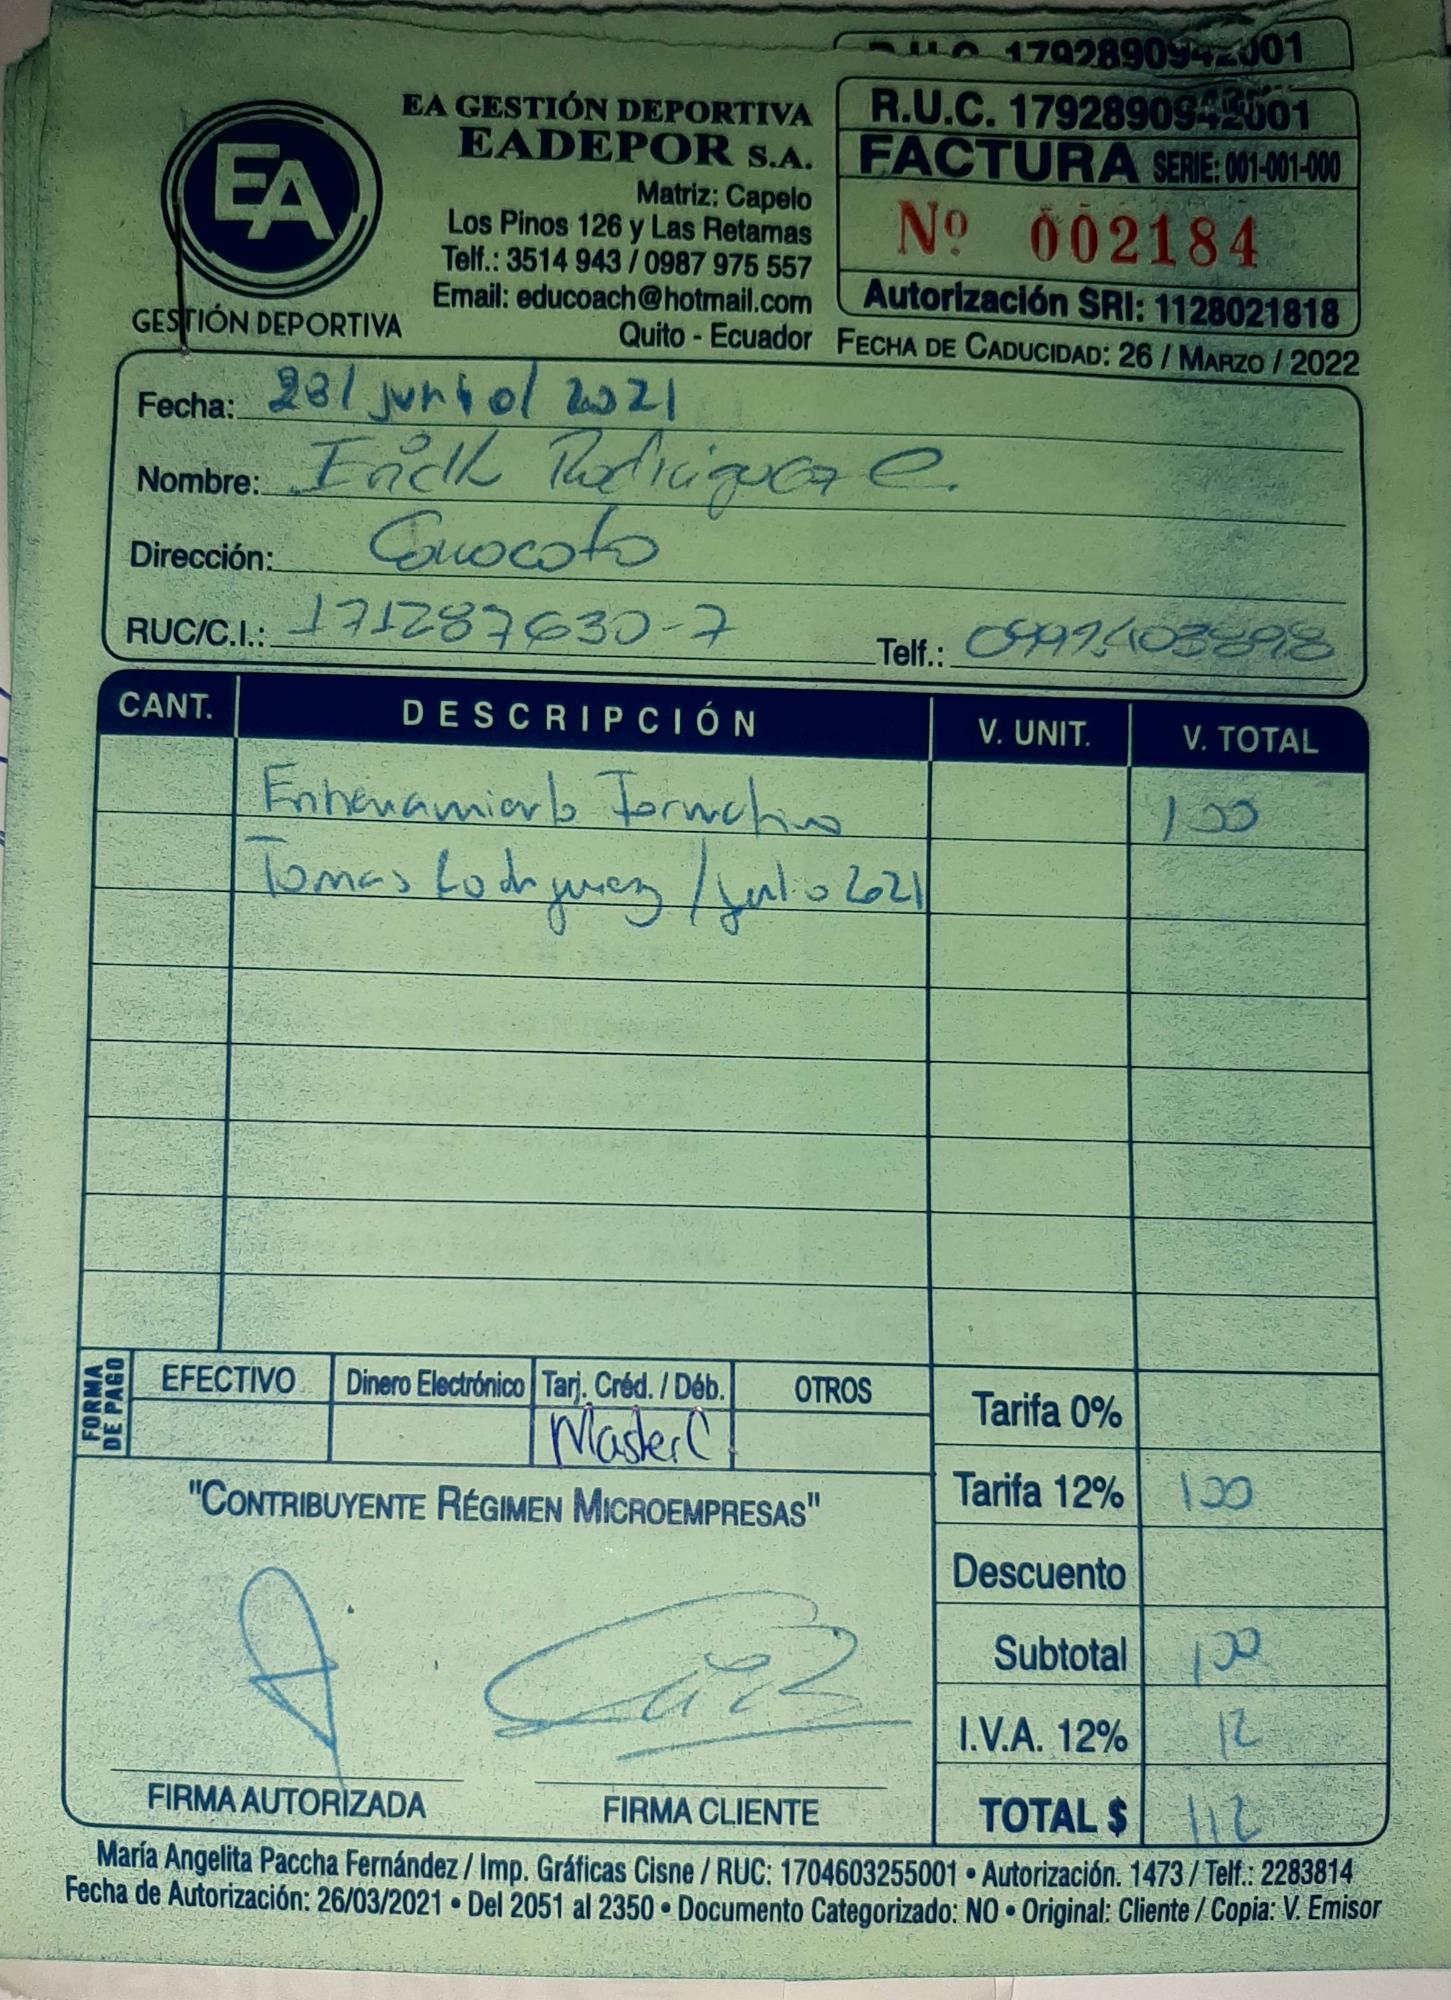 R.U.C. 1792890942001
EA
GESTIÓN DEPORTIVA
EA GESTIÓN DEPORTIVA
EADEPOR S.A.
Matriz: Capelo
Los Pinos 126 y Las Retamas
Telf.: 3514 943 / 0987 975 557
Email: educoach@hotmail.com
Quito - Ecuador
R.U.C. 1792890942001
FACTURA SERIE: 001-001-000
Nº 002184
Autorización SRI: 1128021818
FECHA DE CADUCIDAD: 26 / MARZO / 2022
Fecha: 28/ junio/ 2021
Nombre: Erick Rodriguez C.
Dirección: Conocoto
RUC/C.I.: 171287630-7 Telf.:
CANT. DESCRIPCIÓN V. UNIT. V. TOTAL
Entrenamiento Formativo 100
Tomas Rodriguez / julio 2021
FORMA DE PAGO
EFECTIVO Dinero Electrónico Tarj. Créd. / Déb. OTROS
MasterC
Tarifa 0%
Tarifa 12% 100
Descuento
Subtotal 100
I.V.A. 12% 12
TOTAL $ 112
"CONTRIBUYENTE RÉGIMEN MICROEMPRESAS"
FIRMA AUTORIZADA FIRMA CLIENTE
María Angelita Paccha Fernández / Imp. Gráficas Cisne / RUC: 1704603255001 • Autorización. 1473 / Telf.: 2283814
Fecha de Autorización: 26/03/2021 • Del 2051 al 2350 • Documento Categorizado: NO • Original: Cliente / Copia: V. Emisor